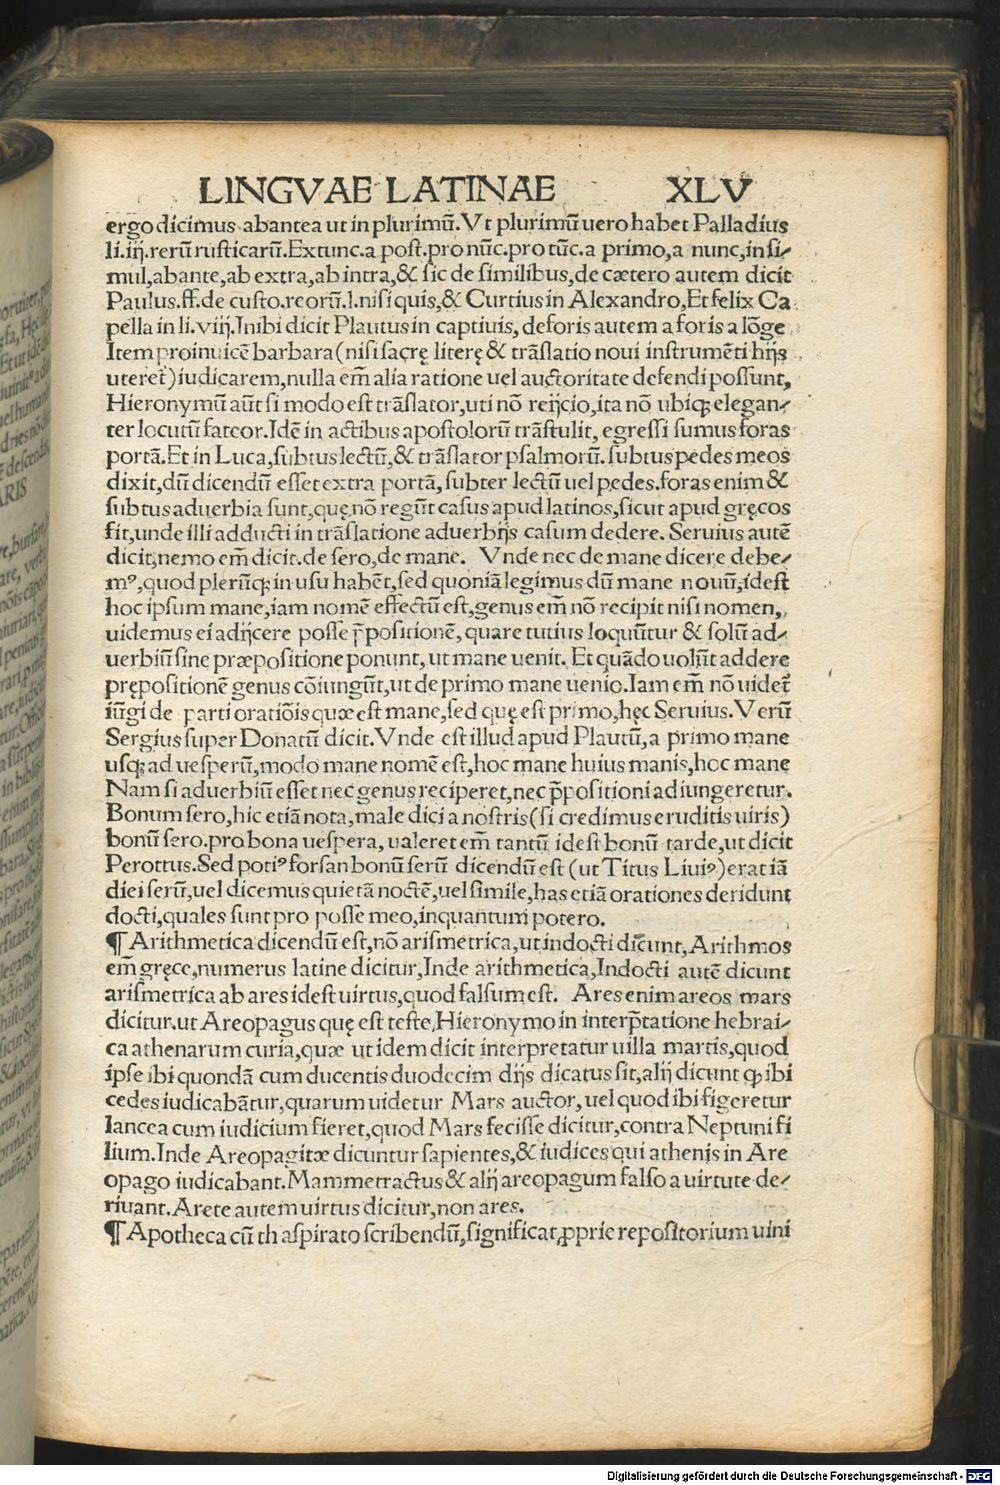 LINGVAE LATINAE XLV
ergo dicimus abantea ut in plurimũ. Vt plurimũ uero habet Palladius
li.iij.rerũ rusticarũ. Extunc.a post.pro nũc.pro tũc.a primo,a nunc,insi⸗
mul,abante,ab extra,ab intra,& sic de similibus,de cætero autem dicit
Paulus.ff.de custo.reorũ.l.nisi quis,& Curtius in Alexandro,Et felix Ca
pella in li.viij.Inibi dicit Plautus in captiuis, deforis autem a foris a lõge
Item proinuicẽ barbara(nisi sacrę literę & trãslatio noui instrumẽti hijs
uteret̃)iudicarem,nulla em̃ alia ratione uel auctoritate defendi possunt,
Hieronymũ aũt si modo est trãslator,uti nõ reijcio,ita nõ ubiqꝫ elegan⸗
ter locutũ fateor.Idẽ in actibus apostolorũ trãstulit, egressi sumus foras
portã.Et in Luca,subtus lectũ,& trãslator psalmorũ.subtus pedes meos
dixit,dũ dicendũ esset extra portã,subter lectũ uel pedes.foras enim &
subtus aduerbia sunt,quę nõ regũt casus apud latinos,sicut apud gręcos
fit,unde illi adducti in trãslatione aduerbijs casum dedere. Seruius autẽ
dicit,nemo em̃ dicit.de sero,de mane. Vnde nec de mane dicere debe⸗
mꝰ,quod plerũqꝫ in usu habẽt,sed quoniã legimus dũ mane nouũ,idest
hoc ipsum mane,iam nomẽ effectũ est,genus em̃ nõ recipit nisi nomen,
uidemus ei adijcere posse p̃positionẽ, quare tutius loquũtur & solũ ad⸗
uerbiũ sine præpositione ponunt, ut mane uenit. Et quãdo uolũt addere
prępositionẽ genus cõiungũt,ut de primo mane uenio.Iam em̃ nõ uidet̃
iũgi de parti oratiõis quæ est mane,sed quę est primo,hęc Seruius.Verũ
Sergius super Donatũ dicit.Vnde est illud apud Plautũ,a primo mane
usqꝫ ad uesperũ,modo mane nomẽ est,hoc mane huius manis,hoc mane
Nam si aduerbiũ esset nec genus reciperet,nec p̃positioni adiungeretur.
Bonum sero,hic etiã nota,male dici a nostris(si credimus eruditis uiris)
bonũ sero.pro bona uespera, ualeret em̃ tantũ idest bonũ tarde,ut dicit
Perottus.Sed potiꝰ forsan bonũ serũ dicendũ est (ut Titus Liuiꝰ)erat iã
diei serũ,uel dicemus quietã noctẽ,uel simile,has etiã orationes deridunt
docti,quales sunt pro posse meo,inquantum potero.
¶ Arithmetica dicendũ est,nõ arismetrica,ut indocti dicunt,Arithmos
em̃ gręce,numerus latine dicitur,Inde arithmetica,Indocti autẽ dicunt
arismetrica ab ares idest uirtus,quod falsum est. Ares enim areos mars
dicitur.ut Areopagus quę est teste,Hieronymo in interp̃tatione hebrai⸗
ca athenarum curia,quæ ut idem dicit interpretatur uilla martis,quod
ipse ibi quondã cum ducentis duodecim dijs dicatus sit,alij dicunt ꝙ ibi
cedes iudicabãtur,quarum uidetur Mars auctor,uel quod ibi figeretur
lancea cum iudicium fieret,quod Mars fecisse dicitur,contra Neptuni fi
lium.Inde Areopagitæ dicuntur sapientes,& iudices qui athenis in Are
opago iudicabant.Mammetractus & alij areopagum falso a uirtute de⸗
riuant.Arete autem uirtus dicitur,non ares.
¶ Apotheca cũ th aspirato scribendũ,significat,ꝓprie repositorium uini
Digitalisierung gefördert durch die Deutsche Forschungsgemeinschaft - DFG